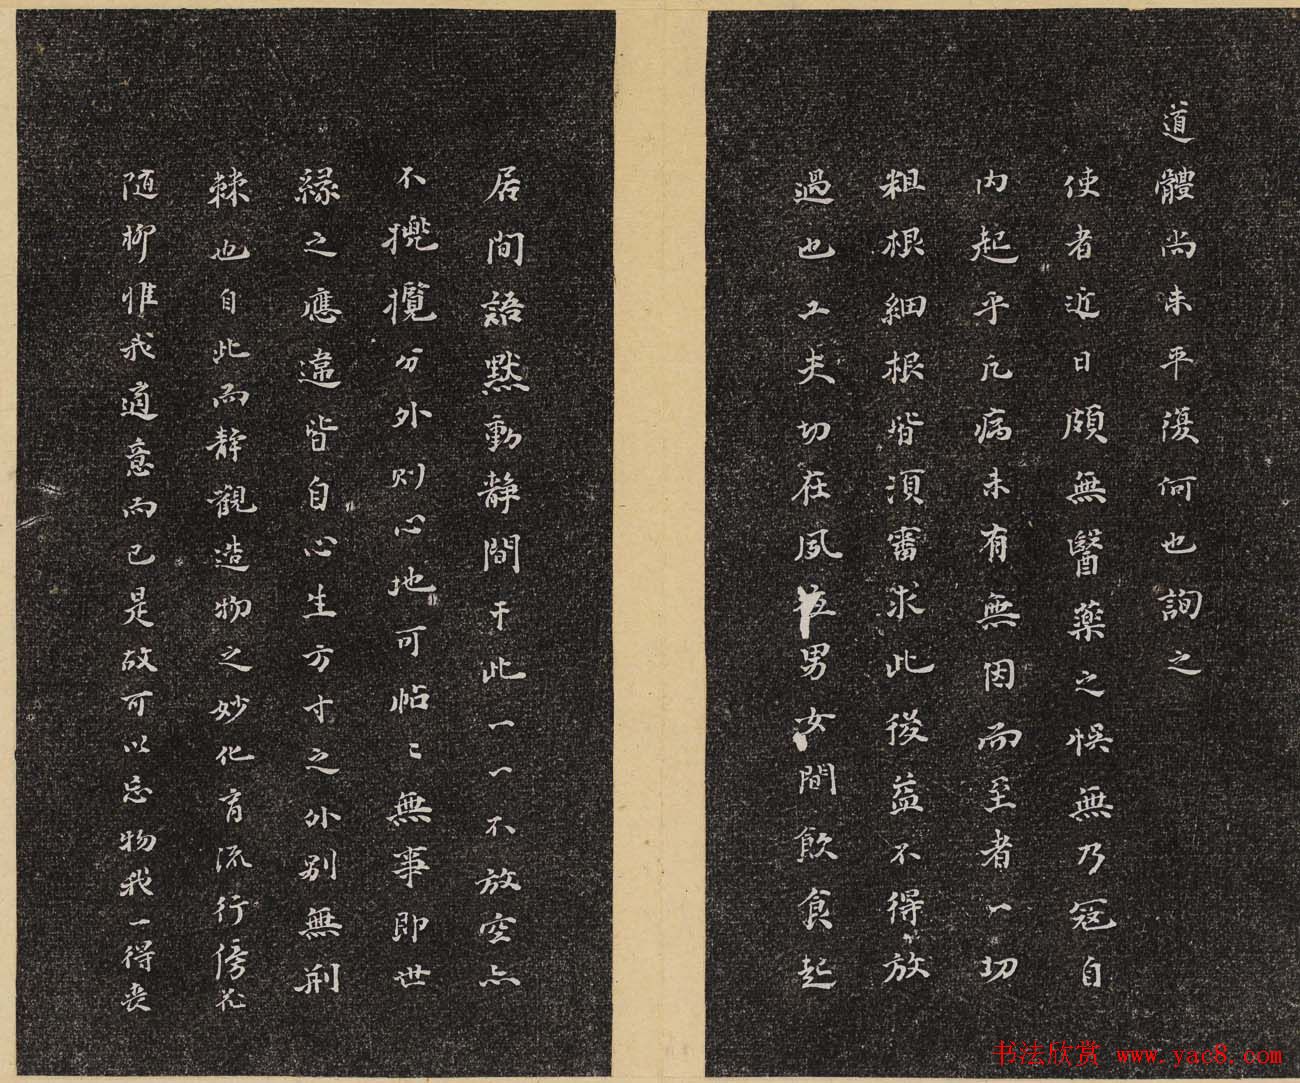 道體尚未平復何也詢之
使者近日頗無醫藥之悞無乃寇自
內起乎凡病未有無因而至者一切
粗根細根皆須審求此後益不得放
過也工夫切在夙夜男女間飲食起
居間語默動靜間于此一一不放空亦
不攙攬分外則心地可帖〻無事即世
緣之應違皆自心生方寸之外別無荊
棘也自此而靜觀造物之妙化育流行傍花
随柳惟我適意而已是故可以忘物我一得喪
书法欣赏 www.yac8.com